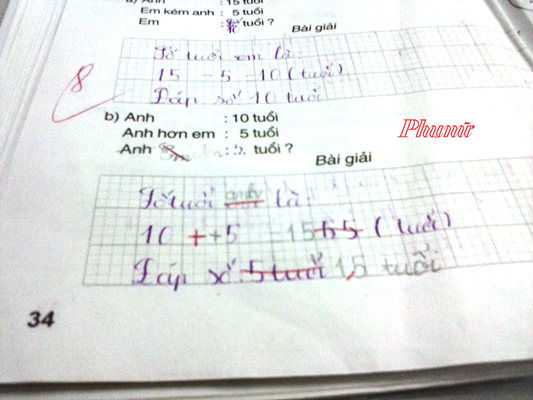 a) Anh : 15 tuổi
Em kém anh : 5 tuổi
Em : tuổi ?
Bài giải
Số tuổi em là:
15 - 5 = 10 (tuổi)
Đáp số 10 tuổi
8
b) Anh : 10 tuổi
Anh hơn em : 5 tuổi
Anh : tuổi ?
Phunữ
Bài giải
Số tuổi anh là
10 + +5 = 15 (tuổi)
Đáp số 5 tuổi 15 tuổi
34